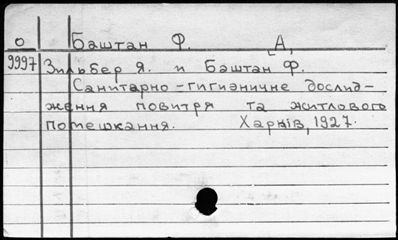 0 Баштан Ф. А.
9997 Зильбер Я. и Баштан Ф.
Санитарно-гигиэничне дослид-
ження повитря та житлового
помешкання. Харків, 1927.